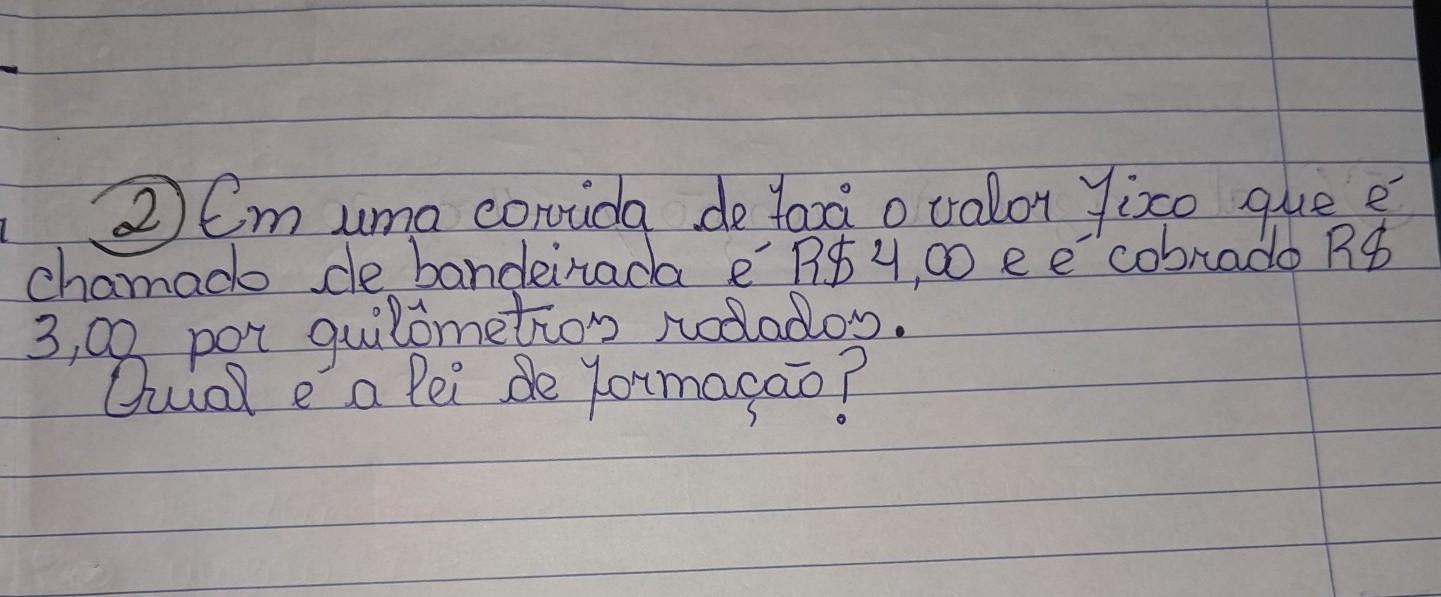 2) Em uma corrida de taxi o valor fixo que é
chamado de bandeirada é R$ 4,00 e é cobrado R$
3,00 por quilômetros rodados.
Qual é a lei de formação?